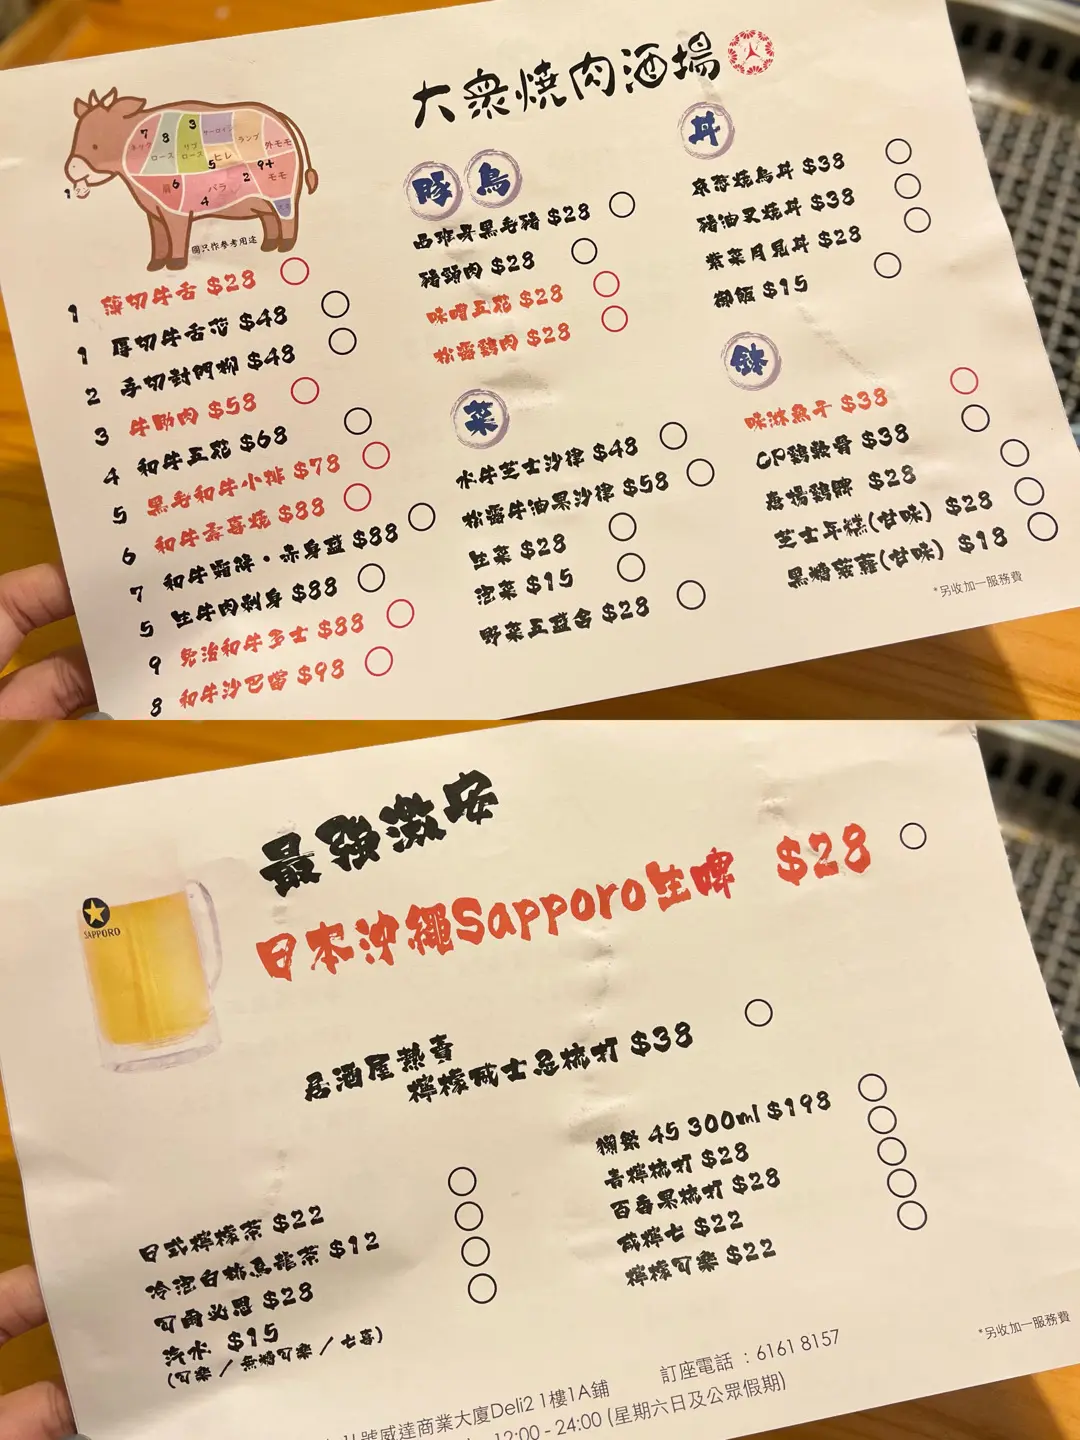 大眾燒肉酒場
7 ネック
8 ロース
3 リブロース
サーロイン
ランプ
外モモ
5 ヒレ
9+ モモ
肩 6
バラ
4
2
1
圖只作參考用途
1 薄切牛舌 $28
1 厚切牛舌芯 $48
2 手切封門柳 $48
3 牛肋肉 $58
4 和牛五花 $68
5 黑毛和牛小排 $78
6 和牛壽喜燒 $88
7 和牛霜降・赤身盛 $88
5 生牛肉刺身 $88
9 免治和牛多士 $88
8 和牛沙巴當 $98
豚 鳥
西班牙黑毛豬 $28
豬頸肉 $28
味噌五花 $28
松露雞肉 $28
菜
水牛芝士沙律 $48
松露牛油果沙律 $58
生菜 $28
泡菜 $15
野菜五盛合 $28
丼
京葱燒鳥丼 $38
豬油叉燒丼 $38
紫菜月見丼 $28
御飯 $15
鉢
味淋魚干 $38
CP雞軟骨 $38
唐揚雞髀 $28
芝士年糕(甘味) $28
黑糖菠蘿(甘味) $18
*另收加一服務費
最強激安
SAPPORO
日本沖繩Sapporo生啤 $28
居酒屋熱賣
檸檬威士忌梳打 $38
獺祭 45 300ml $198
青檸梳打 $28
百香果梳打 $28
咸檸七 $22
檸檬可樂 $22
日式檸檬茶 $22
冷泡白桃烏龍茶 $12
可爾必思 $28
汽水 $15
(可樂 / 無糖可樂 / 七喜)
*另收加一服務費
訂座電話 : 6161 8157
號威達商業大廈Deli2 1樓1A鋪
12:00 - 24:00 (星期六日及公眾假期)